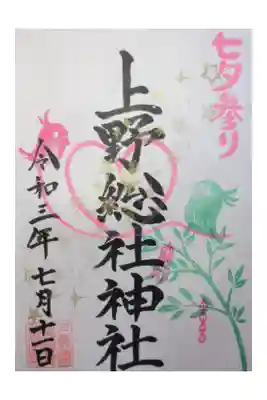 七夕参り
上野總社神社
令和三年七月十一日